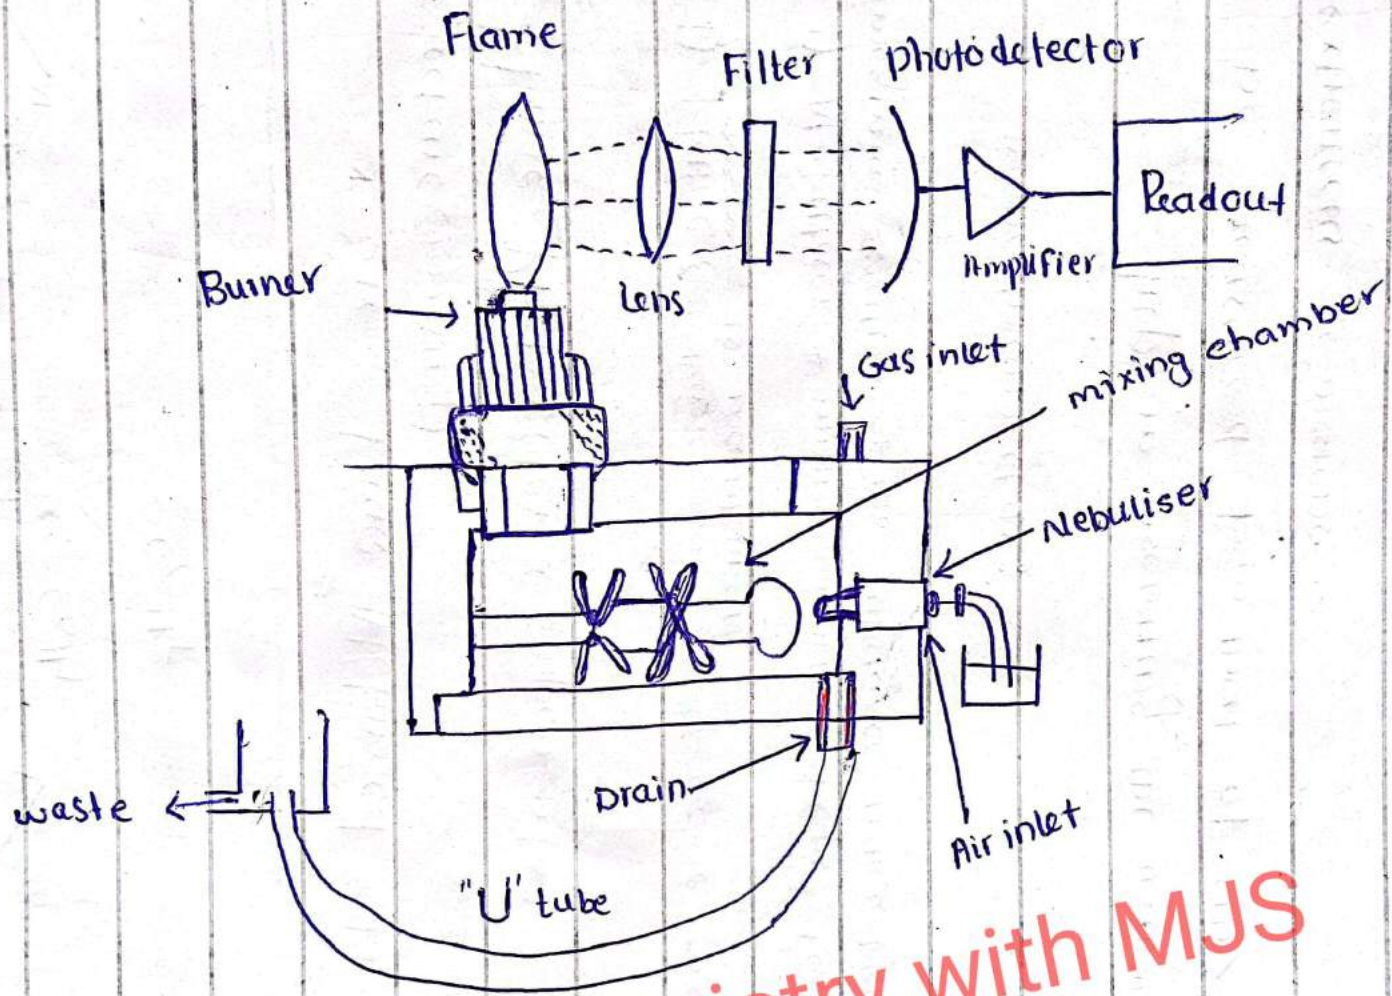 Flame
Filter
Photodetector
Readout
Amplifier
Lens
Burner
Gas inlet
mixing chamber
Nebuliser
Drain
Air inlet
waste
"U" tube
with MJS